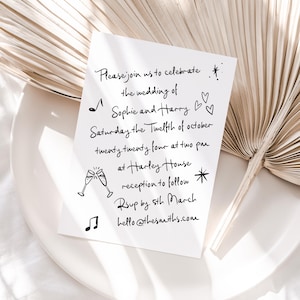 Please join us to celebrate
the wedding of
Sophie and Harry
Saturday the Twelfth of october
twenty twenty four at two pm
at Harley House
reception to follow
Rsvp by 5th March
hello@thesmiths.com